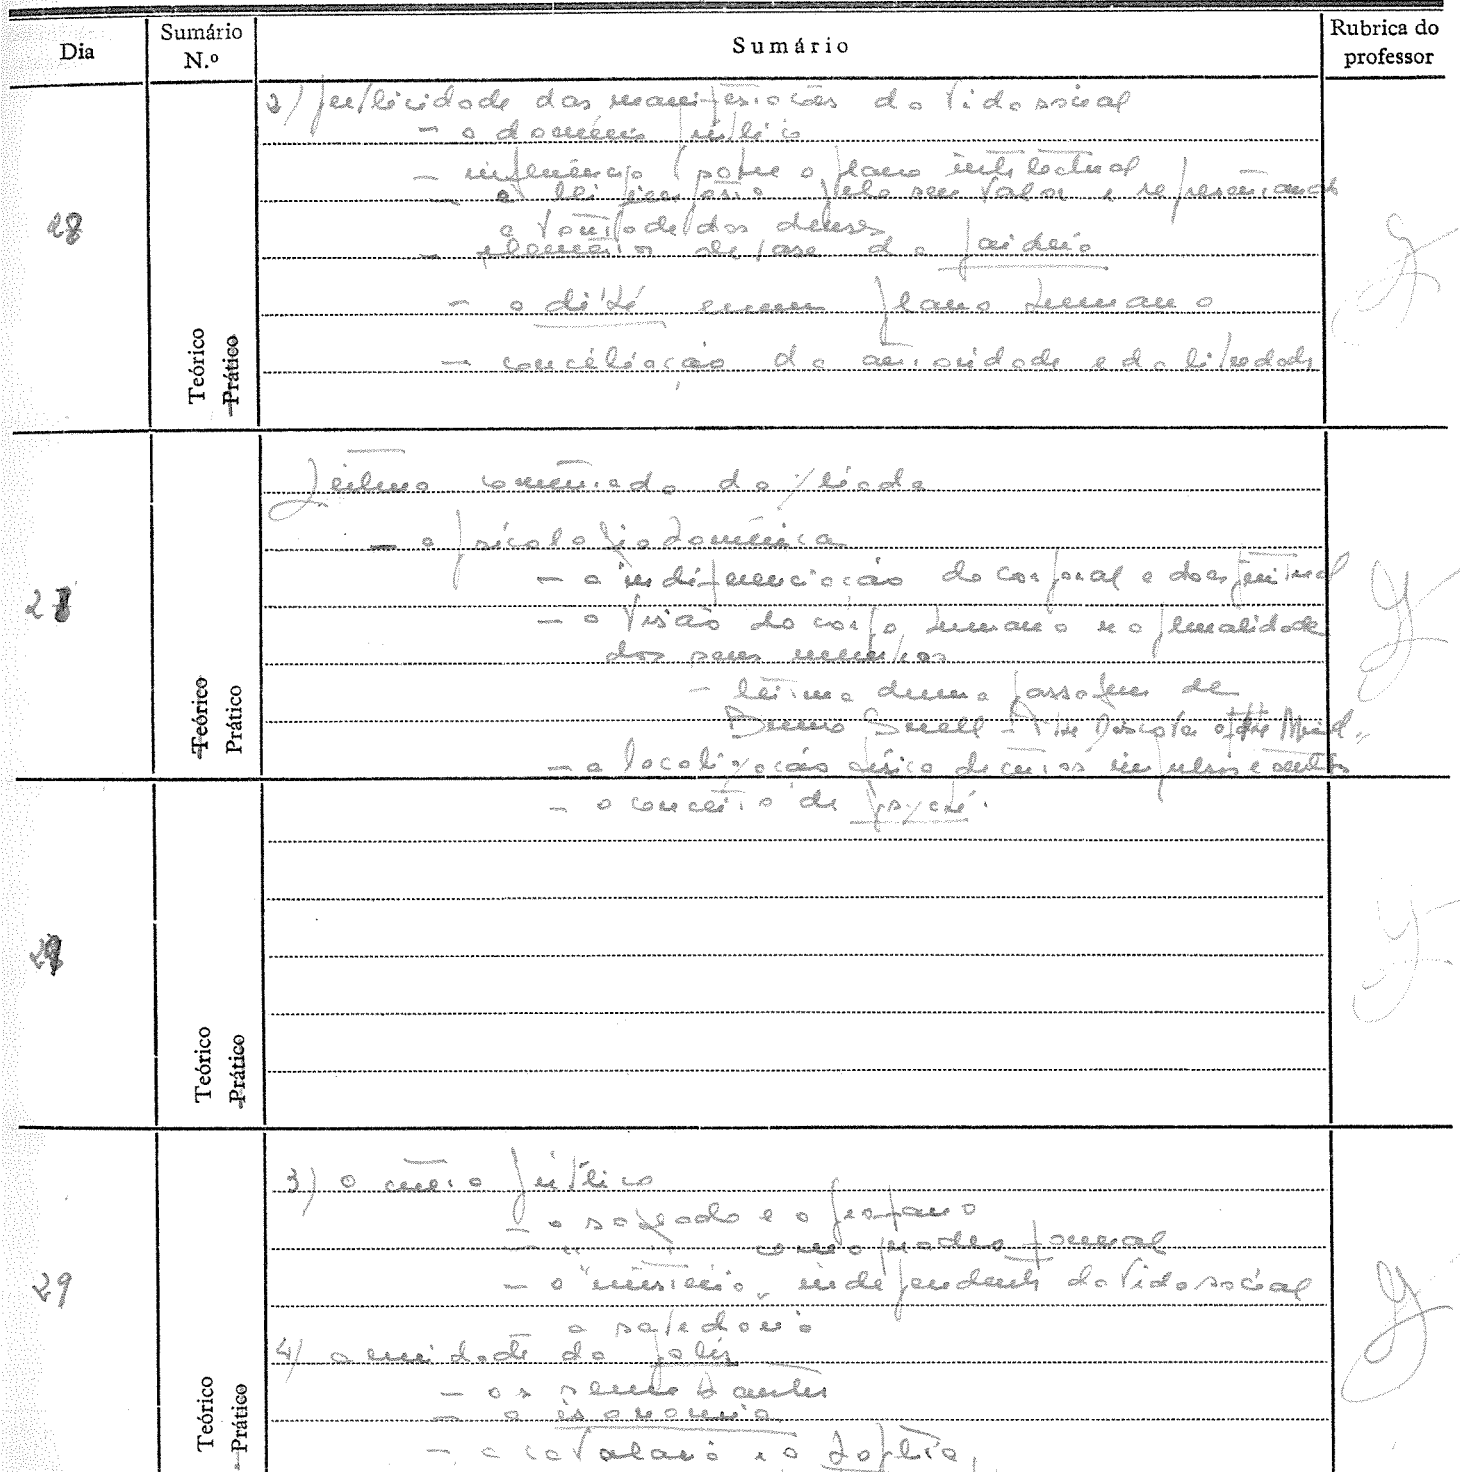 Dia
Sumário N.º
Sumário
Rubrica do professor
28
Teórico
Prático
2) publicidade das manifestações da vida social
- o domínio público
- influência sobre o plano intelectual
- a lei impõe-se pelo seu valor e representando
a vontade dos deuses
- elementos de base da paideia
- a diké num plano humano
- conciliação da autoridade e da liberdade
27
Teórico
Prático
Leitura comentada da Ilíada
- a psicologia homérica
- a indiferenciação do corporal e do espiritual
- a visão do corpo humano na pluralidade
dos seus membros
- leitura duma passagem de
Bruno Snell - "The Discovery of the Mind"
- a localização física de certos impulsos e sentimentos
- o conceito de psyché.
Teórico
Prático
29
Teórico
Prático
3) o culto público
- o sagrado e o profano
- " " como padrão formal
- o "mistério" independente da vida social
a sabedoria
4) a unidade da polis
- os semelhantes
- a isonomia
- o cavaleiro e o hoplita